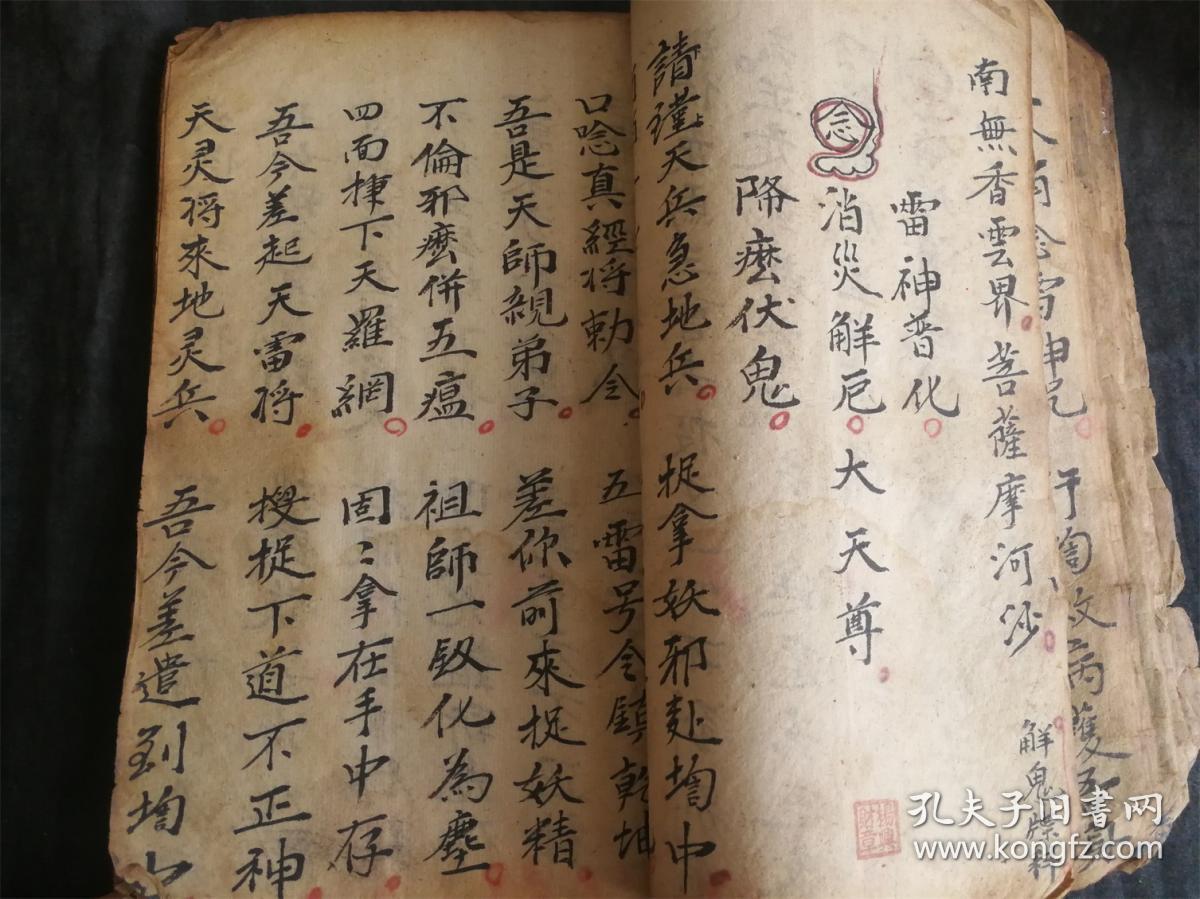 南無香雲界。菩薩摩河沙。
解鬼
雷神普化。
念
消災解厄。大天尊。
降麽伏鬼。
請瑾天兵急地兵。捉拿妖邪赴塆中
口唸真經将勅令。五雷号令鎮乾坤
吾是天師親弟子。差你前來捉妖精
不倫邪麽併五瘟。祖師一釼化為塵
四面揰下天羅網。固〻拿在手中存
吾今差起天雷将。搜捉下道不正神
天灵将來地灵兵。吾今差遣到塆
孔夫子旧书网
www.kongfz.com